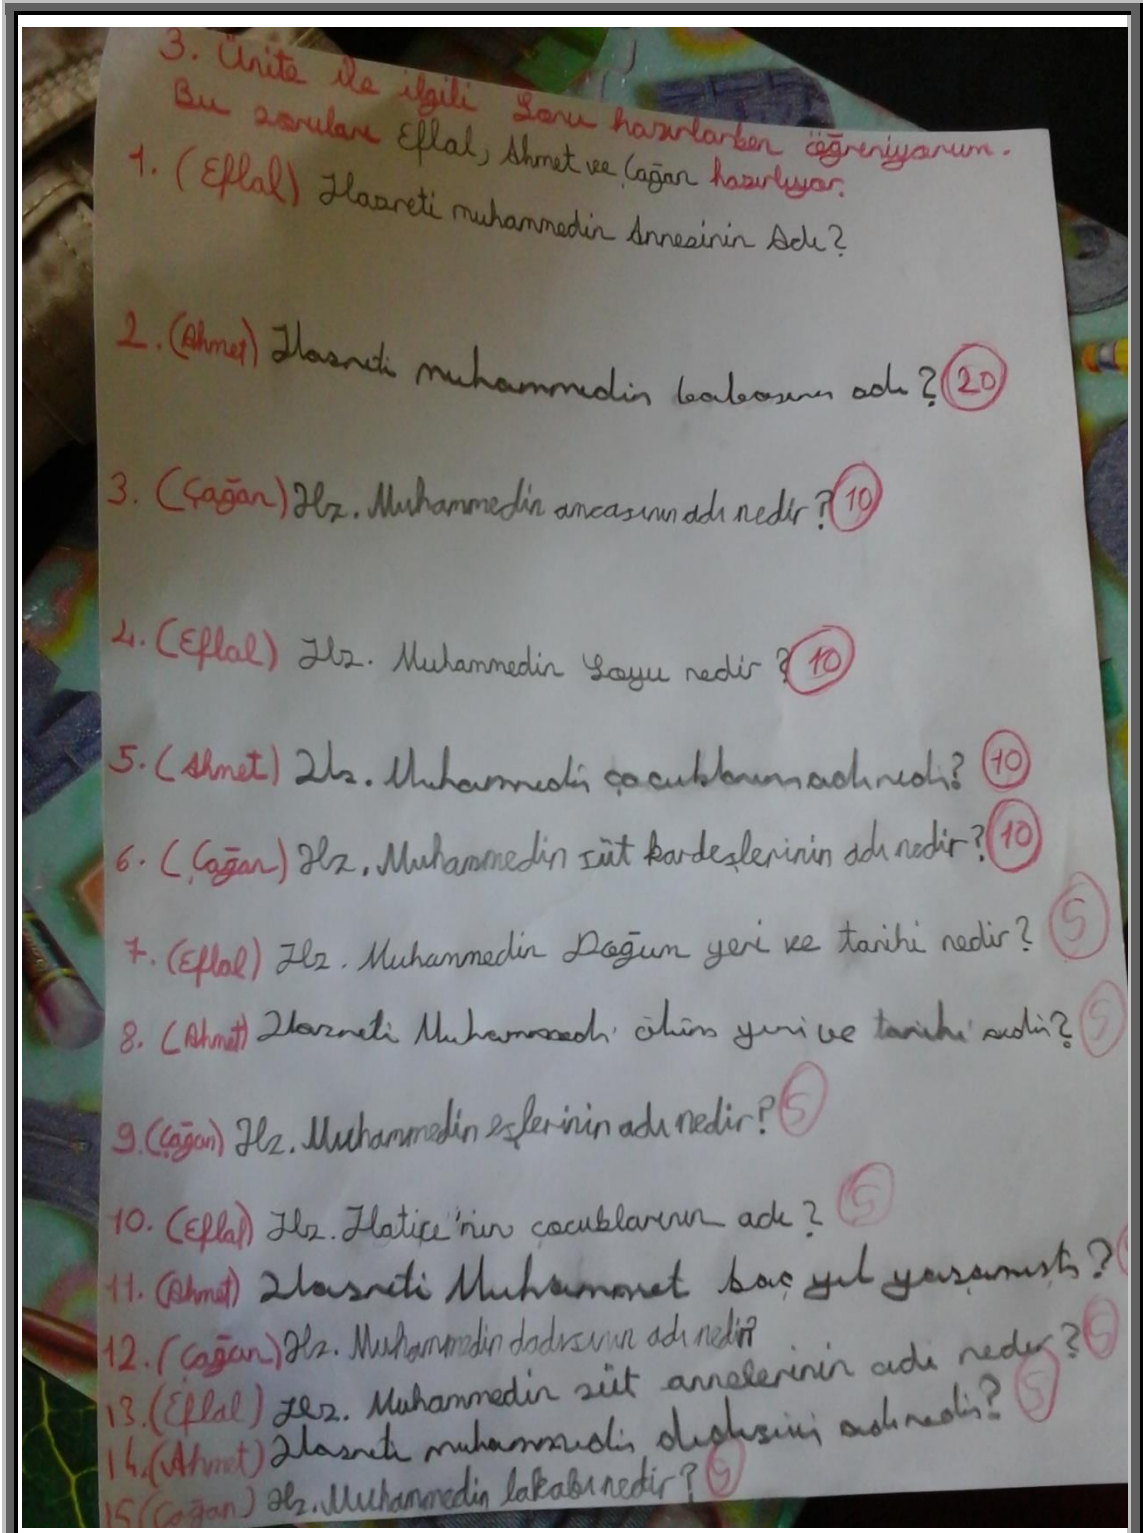 3. Ünite ile ilgili Soru hazırlarken öğreniyorum.
Bu soruları Eflal, Ahmet ve Çağan hazırlıyor.
1. (Eflal) Hazreti muhammedin Annesinin Adı?
2. (Ahmet) Hazreti muhammedin babasının adı? 20
3. (Çağan) Hz. Muhammedin amcasının adı nedir? 10
4. (Eflal) Hz. Muhammedin Soyu nedir? 10
5. (Ahmet) Hz. Muhammedin çocuklarının adı nedir? 10
6. (Çağan) Hz. Muhammedin süt kardeşlerinin adı nedir? 10
7. (Eflal) Hz. Muhammedin Doğum yeri ve tarihi nedir? 5
8. (Ahmet) Hazreti Muhammedin ölüm yeri ve tarihi nedir? 5
9. (Çağan) Hz. Muhammedin eşlerinin adı nedir? 5
10. (Eflal) Hz. Hatice'nin çocuklarının adı? 5
11. (Ahmet) Hazreti Muhammet kaç yıl yaşamıştı?
12. (Çağan) Hz. Muhammedin dadısının adı nedir?
13. (Eflal) Hz. Muhammedin süt annelerinin adı nedir? 5
14. (Ahmet) Hazreti muhammedin dedesinin adı nedir? 5
15 (Çağan) Hz. Muhammedin lakabı nedir? 5